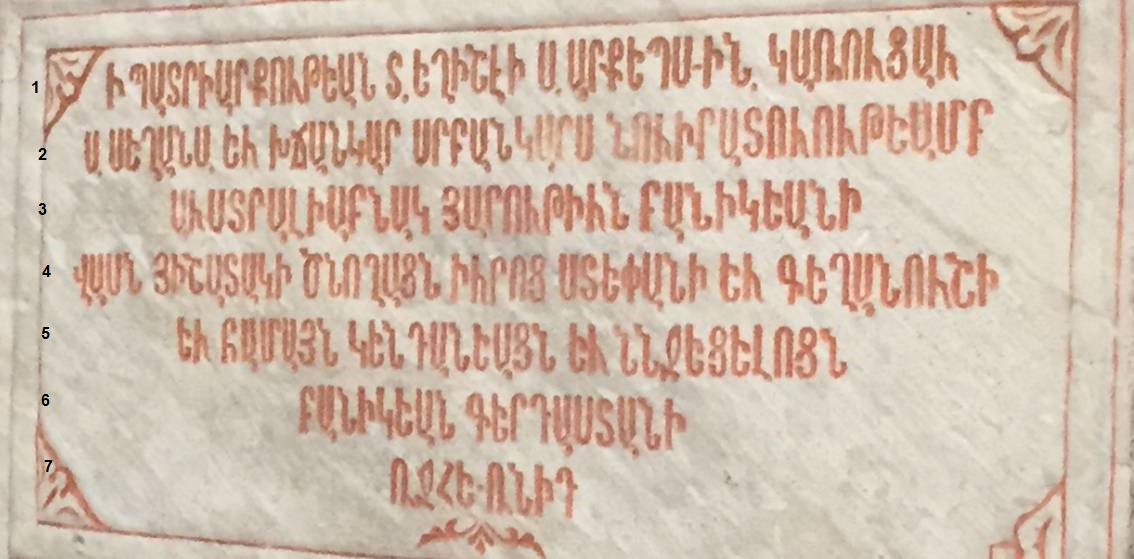 1 Ի ՊԱՏՐԻԱՐՔՈՒԹԵԱՆ Տ. ԵՂԻՇԷԻ Ս. ԱՐՔԵՊՍ-ԻՆ. ԿԱՌՈՒՑԱՒ
2 Ս. ՍԵՂԱՆՍ ԵՒ ԽՃԱՆԿԱՐ ՍՐԲԱՆԿԱՐՍ ՆՈՒԻՐԱՏՈՒՈՒԹԵԱՄԲ
3 ԱՒՍՏՐԱԼԻԱԲՆԱԿ ՅԱՐՈՒԹԻՒՆ ԲԱՆԻԿԵԱՆԻ
4 ՎԱՍՆ ՅԻՇԱՏԱԿԻ ԾՆՈՂԱՑՆ ԻՒՐՈՑ ՍՏԵՓԱՆԻ ԵՒ ԳԵՂԱՆՈՒՇԻ
5 ԵՒ ՀԱՄԱՅՆ ԿԵՆԴԱՆԵԱՑՆ ԵՒ ՆՆՋԵՑԵԼՈՑՆ
6 ԲԱՆԻԿԵԱՆ ԳԵՐԴԱՍՏԱՆԻ
7 ՌՋՀԵ-ՌՆԻԴ